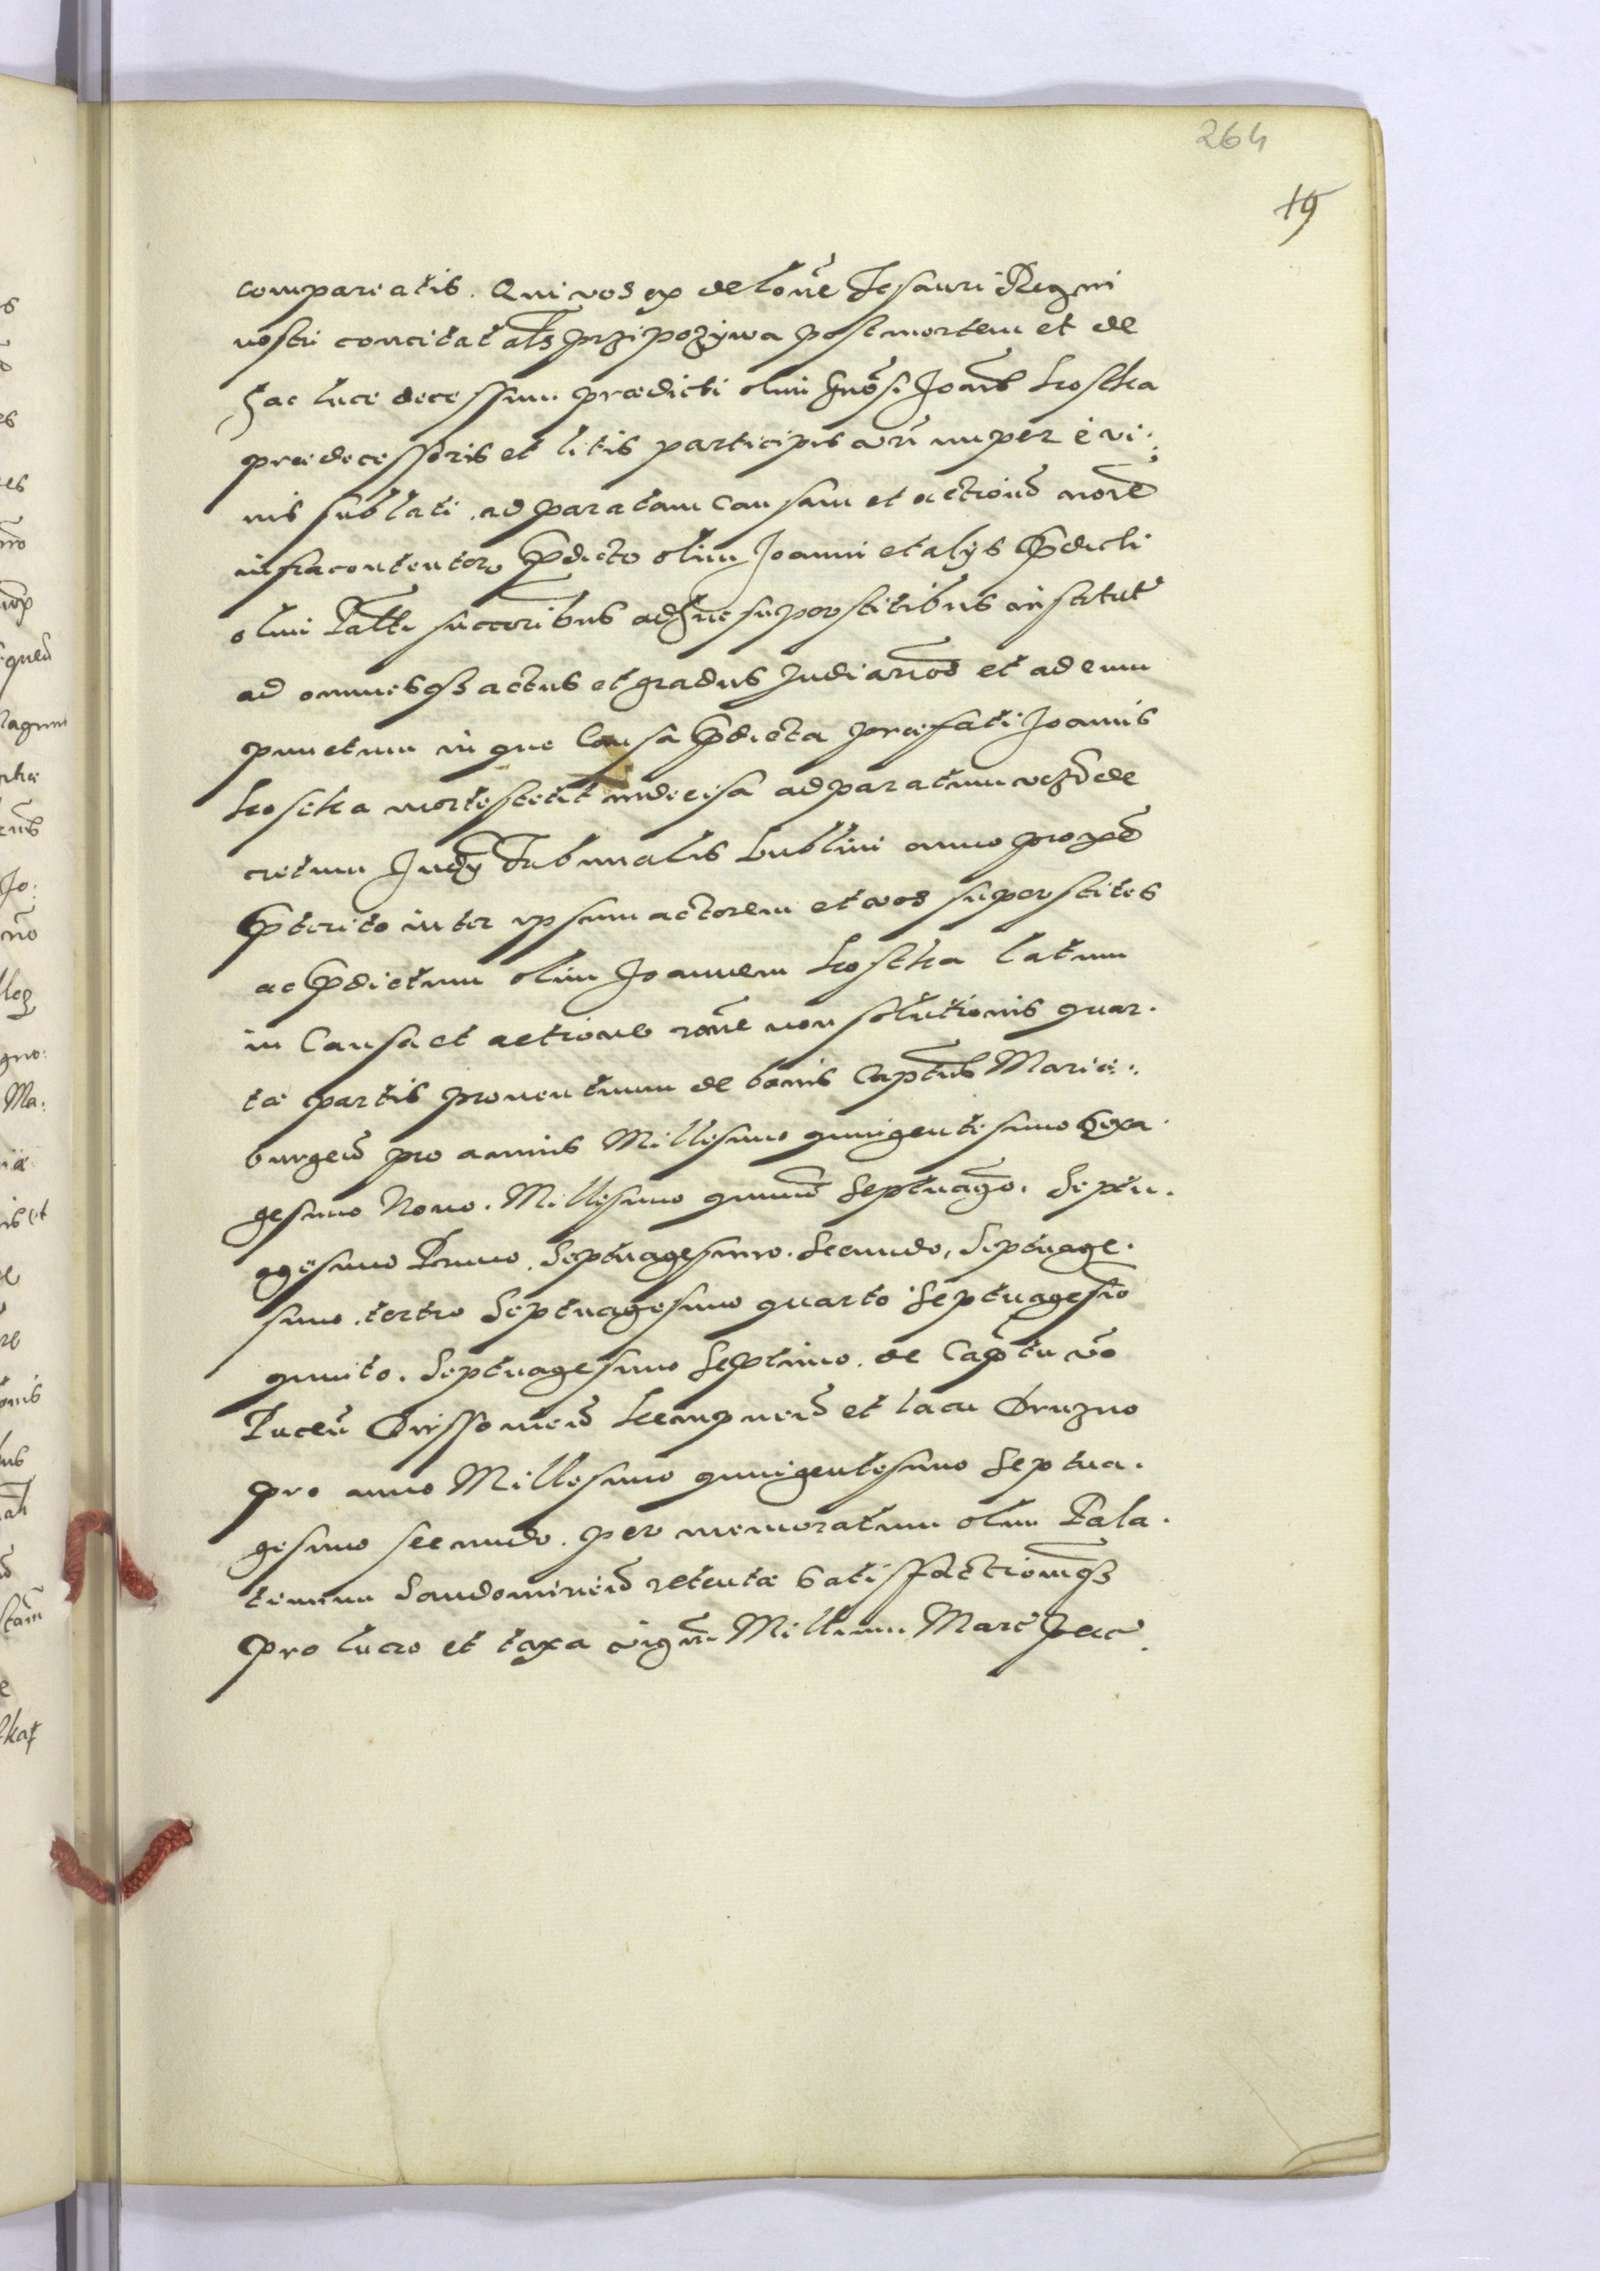 264
19
compareatis. Qui vos ex delōne Tesauri Regni
nostri concitat als przipozywa post mortem et de
hac luce decessum prædicti olim Gnōsi Joanīs Kostka
prædecessoris et litis participis vrī nuper e vi:
vis sublati, ad paratam Causam et actionē noīe
infracontentor, Pdicto olim Joanni et alys Pdicti
olim Palti succoribus adhuc superstitibus institut
ad omnesqȝ actus et gradus Judiarios et ad eum
punctum in quo Causa Pdicta præfati Joannis
Kostka morte stetit indecisa ad paratum vezD de
cretum Judȳ Tribunalis Lublini anno proxe
Pterito inter ipsum actorem et vos superstites
ac Pdictum olim Joannem Kostka latum
in Causa et actione roñe non solutionis quar.
tæ partis prouentuum de bonis Capteus Marie.
burgeñ pro annis Millesimo quingentesimo Sexa.
gesimo Nono. Millesimo quinto Septuago. Septu.
agesimo Primo, Septuagesimo. Secundo, Septuage.
simo. tertio Septuagesimo quarto Septuagesīo
quinto. Septuagesimo Septimo. de Captu vō
Puceñ et lacu Druzno
pro anno Millesimo quingentesimo Septua.
gesimo secundo. per memoratum olim Pala.
tinum Sandomirieñ retentæ Satisfactionqȝ
pro lucro et taxa Millium Marc